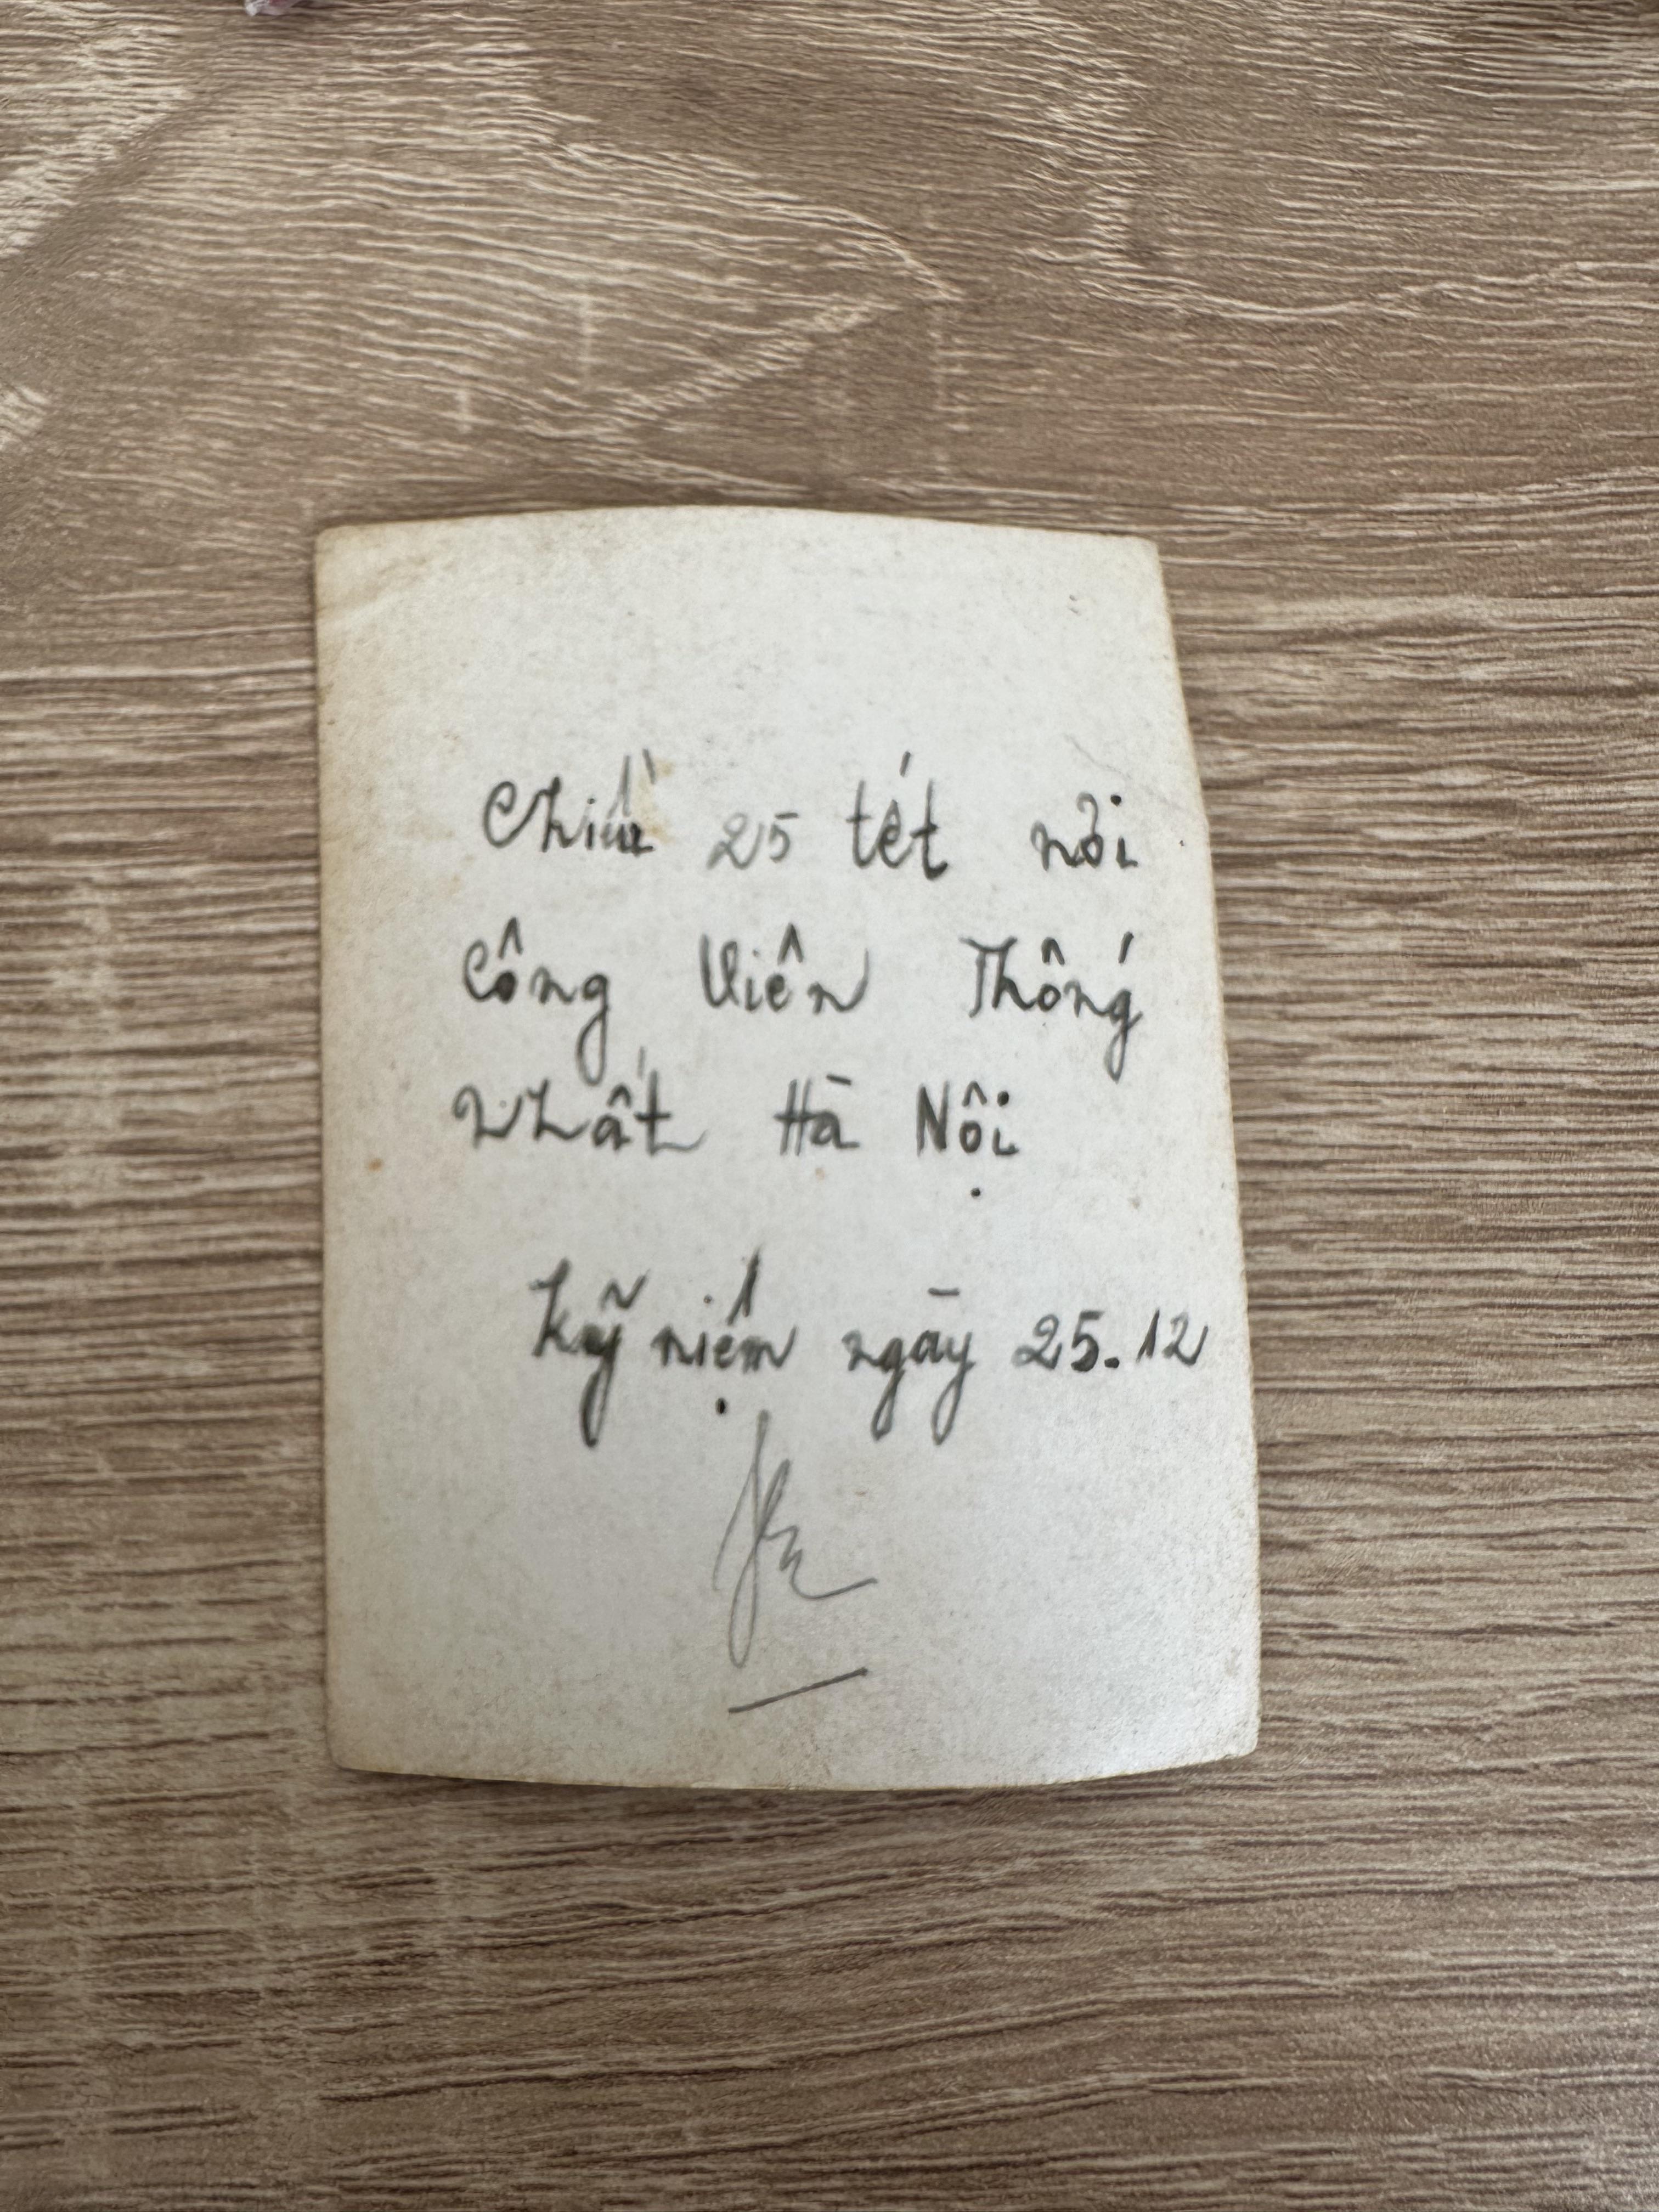 Chiều 25 tết nơi
Công Viên Thống
Nhất Hà Nội
Kỹ niệm ngày 25.12